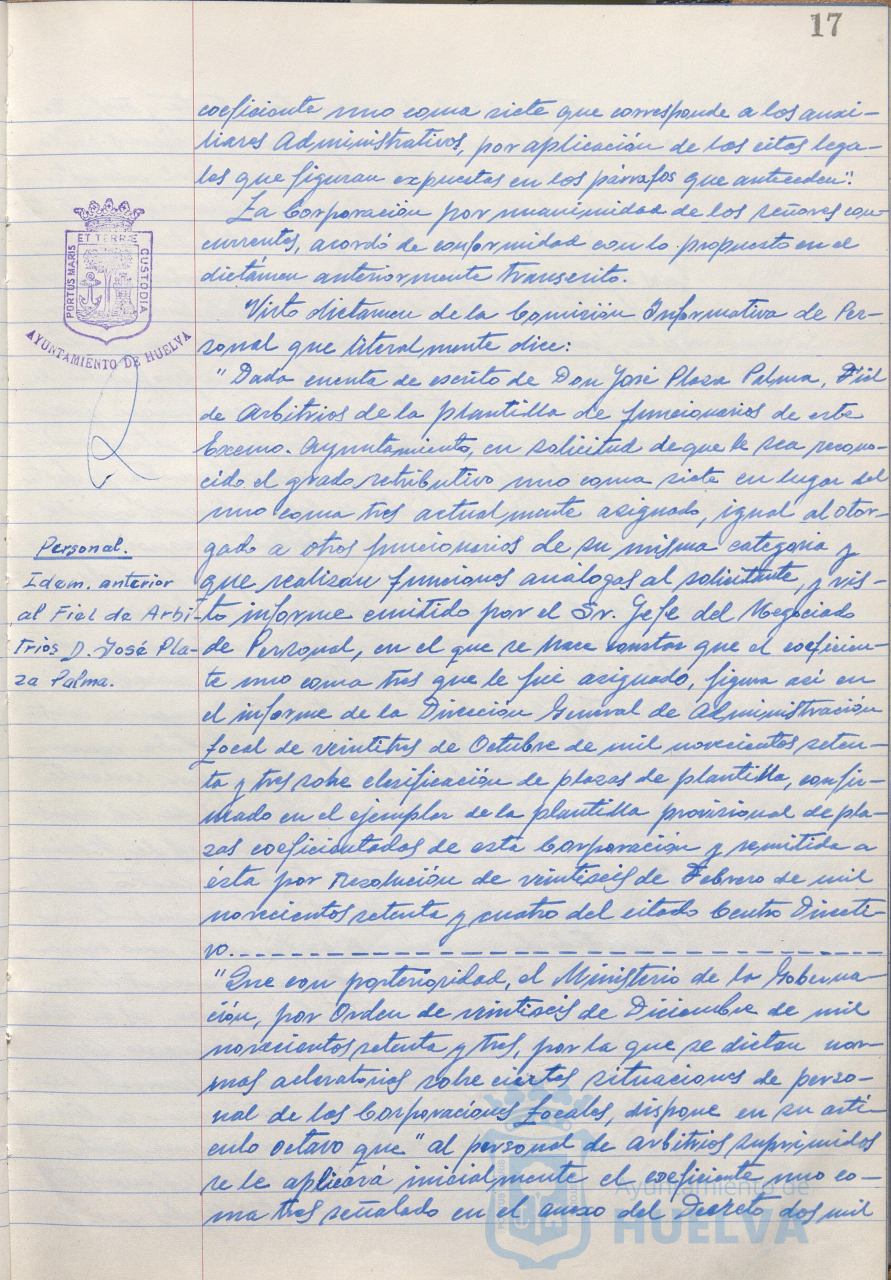 17
coeficiente uno coma siete que corresponde a los auxi-
liares Administrativos, por aplicación de las citas lega-
les que figuran expuestas en los párrafos que anteceden".
La Corporación por unanimidad de los señores con-
currentes, acordó de conformidad con lo propuesto en el
dictámen anteriormente transcrito.
Visto dictamen de la Comisión Informativa de Per-
sonal que literalmente dice:
"Dada cuenta de escrito de Don José Plaza Palma, Fiel
de Arbitrios de la plantilla de funcionarios de este
Excmo. Ayuntamiento, en solicitud de que le sea recono-
cido el grado retributivo uno coma siete en lugar del
uno coma tres actualmente asignado, igual al otor-
gado a otros funcionarios de su misma categoria y
que realizan funciones análogas al solicitante, y vis-
to informe emitido por el Sr. Jefe del Negociado
de Personal, en el que se hace constar que el coeficien-
te uno coma tres que le fué asignado, figura asi en
el informe de la Dirección General de Administración
Local de veintitres de Octubre de mil novecientos seten-
ta y tres sobre clasificación de plazas de plantilla, confir-
mado en el ejemplar de la plantilla provisional de pla-
zas coeficientadas de esta Corporación y remitida a
ésta por Resolución de veintiseis de Febrero de mil
novecientos setenta y cuatro del citado Centro Directi-
vo.
"Que con posterioridad, el Ministerio de la Goberna-
ción, por Orden de veintiseis de Diciembre de mil
novecientos setenta y tres, por la que se dictan nor-
mas aclaratorias sobre ciertas situaciones de perso-
nal de las Corporaciones Locales, dispone en su artí-
culo octavo que "al personal de arbitrios suprimidos
se le aplicará inicialmente el coeficiente uno co-
ma tres señalado en el anexo del Decreto dos mil
PORTUS MARIS
ET TERRÆ
CUSTODIA
AYUNTAMIENTO DE HUELVA
Personal.
Idem. anterior
al Fiel de Arbi-
trios D. José Pla-
za Palma.
Ayuntamiento de
HUELVA